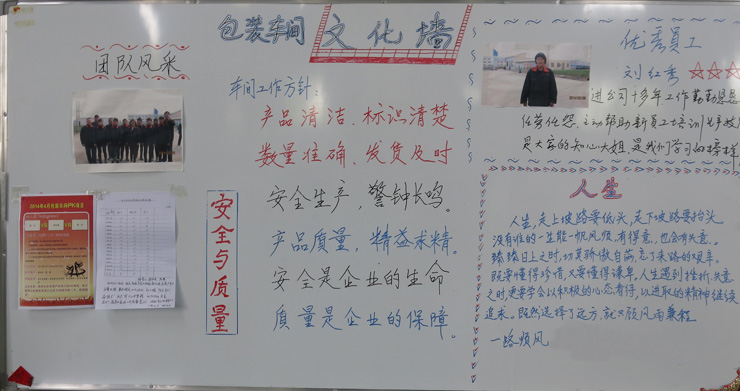 包装车间 文化墙
团队风采
车间工作方针：
产品清洁、标识清楚
数量准确、发货及时
安全与质量
安全生产，警钟长鸣。
产品质量，精益求精。
安全是企业的生命
质量是企业的保障。
优秀员工
刘红秀 ☆☆☆
进公司十多年工作勤勤恳恳
任劳任怨，主动帮助新员工培训
是大家的知心大姐，是我们学习的榜样
人生
人生，走上坡路要低头，走下坡路要抬头
没有谁的一生能一帆风顺，有得意，也会有失意。
日上之时，切莫骄傲自满，忘了来路的艰辛。
既要懂得珍惜，又要懂得谦卑，人生遇到挫折失意
之时更要学会以积极的心态看待，以进取的精神继续
追求。既然选择了远方，就只顾风雨兼程
一路顺风